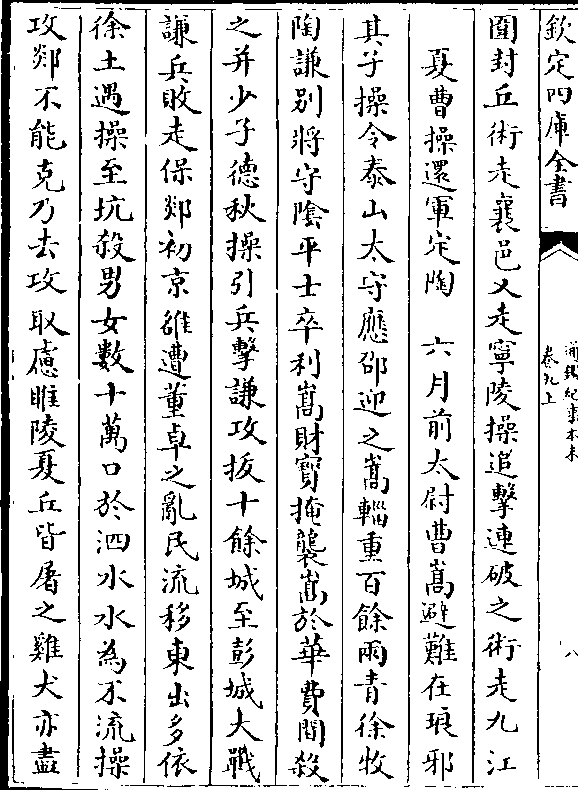 欽定四庫全書
通鑑紀事本末
卷九上
八
圍封丘術走襄邑又走寧陵操追擊連破之術走九江
夏曹操還軍定陶　六月前太尉曹嵩避難在琅邪
其子操令泰山太守應邵迎之嵩輜重百餘兩青徐牧
陶謙別將守陰平士卒利嵩財寶掩襲嵩於華費間殺
之并少子德秋操引兵擊謙攻拔十餘城至彭城大戰
謙兵敗走保郯初京雒遭董卓之亂民流移東出多依
徐土遇操至坑殺男女數十萬口於泗水水為不流操
攻郯不能克乃去攻取慮睢陵夏丘皆屠之雞犬亦盡